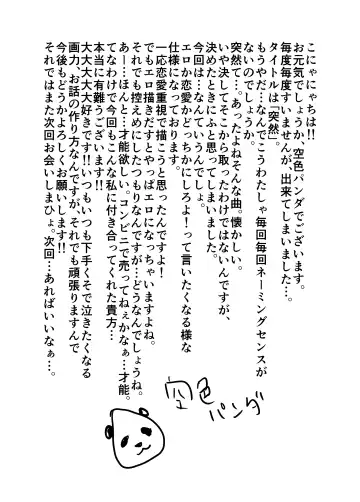 こにゃにゃちは!!
お元気でしょうか、空色パンダでございます。
毎度毎度すいませんが、出来てしまいました…。
タイトルは「突然」。
もうやだ…なんでこうわたしゃ毎回毎回ネーミングセンスが
ないのでしょうか。
突然て…。あったよねそんな曲。懐かしい。
いや決してそこから取ったわけではないんですが、
決めたときにふと思ってしまいました。
今回は…なんていうんでしょ。
エロか恋愛かどっちかにしろよ!って言いたくなる様な
仕様になっております。
一応恋愛重視で描こうと思ったんですよ!
でもエロ描きだすとやっぱエロになっちゃいますよね。
それでも控えめにしたつもりなんですが…どうなんでしょうね。
あー…ほんと…才能欲しい。「コンビニで売ってねぇかなぁ…才能。
てなわけで今回もこんな私に付き合ってくれた貴方…
本当に有難うございます!!
大大大大大好きです!!いつもいつも下手くそで泣きたくなる
画力、お話の作り方なんですが、それでも頑張りますんで
今後もどうかよろしくお願いします!!
それではまた次回お会いしまひょ。次回…あればいいなぁ…。
空色
パンダ